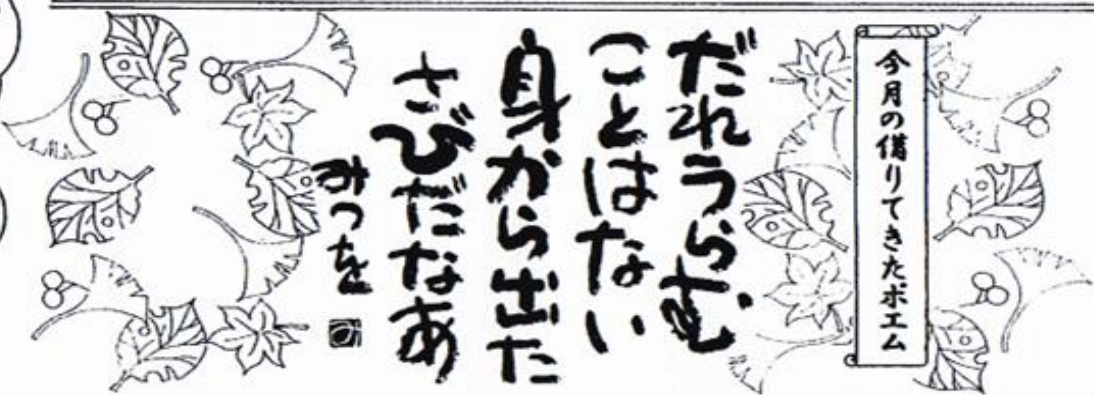 今月の借りてきたポエム
だれうらむ
ことはない
身から出た
さびだなあ
みつを
み